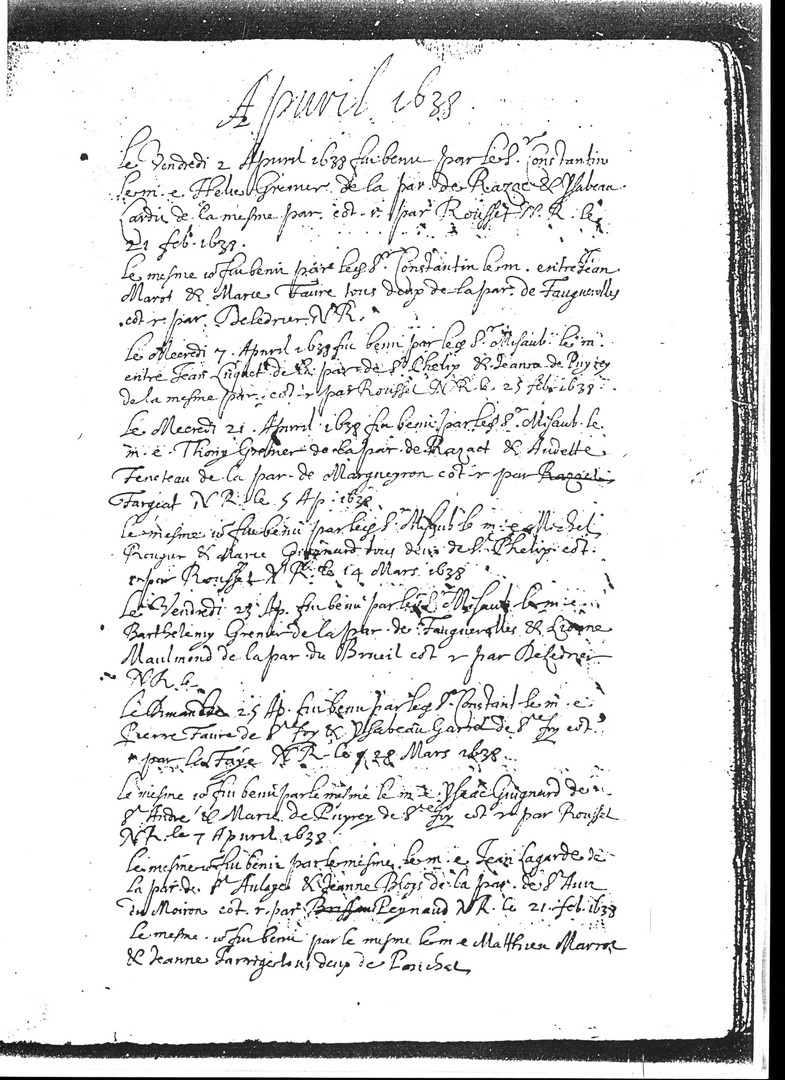 Apuril 1638
Le Vendredi 2 Apuril 1638 fut benu par le Sr Constantin
le m. e Helie Grenier de la par. de Razac & Ysabeau
Cardu de la mesme par. cot. r. par Rousset N. R. le
21 feb. 1638.
le mesme jor fut beni par led Sr Constantin le m. entre Jean
Marot & Marie Faure tous deux de la par. de Fauguerolles
cot r. par Deledrier N R.
Le Mecredi 7 Apuril 1638 fut beni par led Sr Misaub. le m.
entre Jean de la par. de St Phelix & Jeanne de Puyrey
de la mesme par. cot. r par Rousset N R. le 25 feb 1638
Le Mecredi 21 Apuril 1638 fut beni par led Sr Misaub. le
m. e. Thony Grenier de la par. de Razact & Audette
Feneteau de la par. de Margueyron cot r par
Fargeat N R. le 5 Ap. 1638
Le mesme jor fut benu par led Sr Misaub le m. e Michel
Rougier & Marie tous deux de St Phelix cot.
r par Rousset N R. le 14 Mars 1638
Le Vendredi 23 Ap. fut benu par led Sr Misaub le m. e
Barthelemy Grenier de la par. de Fauguerolles & Lionne
Maulmond de la par. du Brueil cot r par Deledrier
N R le
Le Dimanche 25 Ap. fut benu par led Sr Constant le m. e
Pierre Faure de Ste Foy & Ysabeau Garrol de Ste Foy cot.
r par La Faye N R le 28 Mars 1638.
le mesme jor fut beni par le mesme le m e Ysaac Guignard de
St André & Marie de Puyrey de Ste Foy cot r par Rousset
N R. le 7 Apuril 1638
Le mesme jor fut beni par le mesme le m. e Jean Lagarde de
la par. de St Aulaye & Jeanne Bloys de la par. de St Auu
du Moiron cot. r. par Peynaud N R. le 21 feb. 1638
Le mesme jor fut beni par le mesme le m e Matthieu Marrot
& Jeanne tous deux de Ponchat